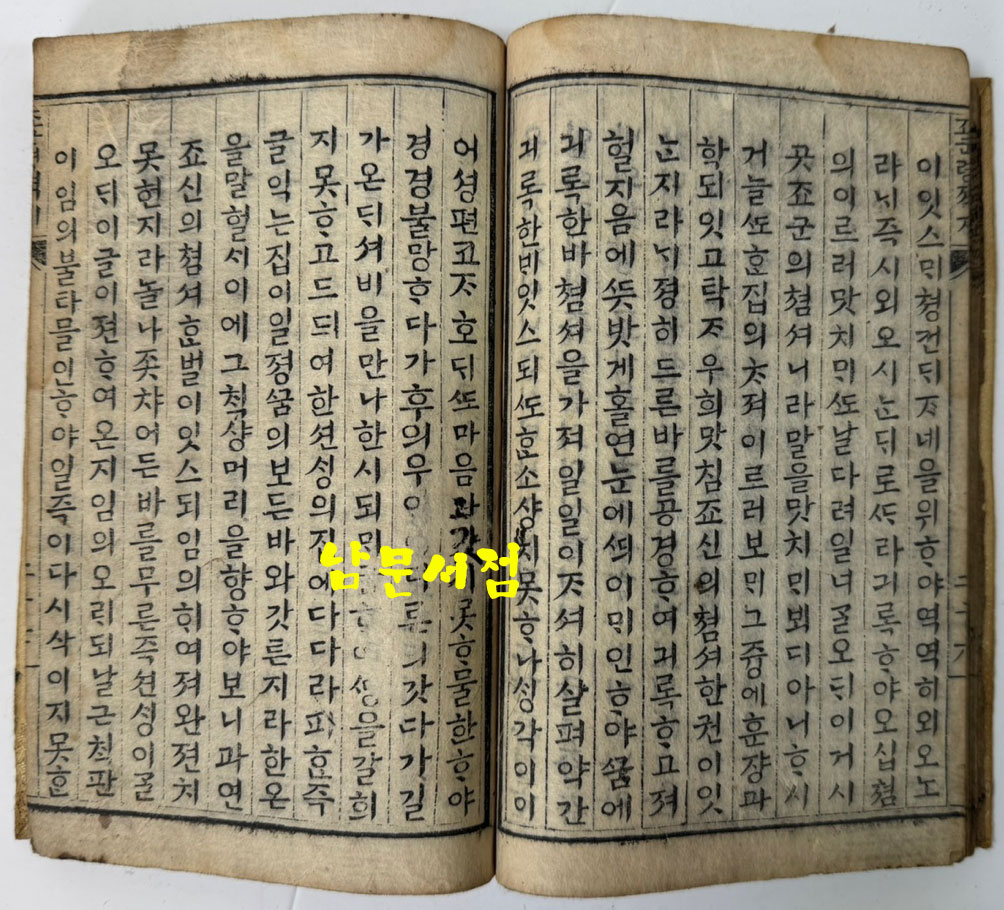 죠군령젹지
이잇스ᄆᆡ쳥컨ᄃᆡᄌᆞ네을위ᄒᆞ야역역히외오노
라ᄂᆡ즉시외오시ᄂᆞᆫᄃᆡ로ᄯᆞ라긔록ᄒᆞ야오십쳠
의이르러맛치ᄆᆡᄯᅩ날다려일너ᄀᆞᆯ오ᄃᆡ이거시
곳죠군의쳠셔니라말을맛치ᄆᆡ뵈디아니ᄒᆞ시
거늘ᄯᅩᄒᆞᆫ집의ᄎᆞ져이르러보ᄆᆡ그즁에훈쟝과
학되잇고탁ᄌᆞ우희맛침죠신의쳠셔한권이잇
ᄂᆞᆫ지라ᄂᆡ졍히드른바를공경ᄒᆞ여긔록ᄒᆞ고져
헐지음에ᄯᅳᆺ밧게홀연눈에ᄯᅴ이ᄆᆡ인ᄒᆞ야ᄭᅮᆷ에
긔록한바쳠셔을가져일일이ᄌᆞ셔히살펴약간
긔록한ᄇᆡ잇스되ᄯᅩᄒᆞᆫ소샹치못ᄒᆞ나ᄉᆡᆼ각이이
어셩편코ᄌᆞᄒᆞᄃᆡᄯᅩ마음과갓 못ᄒᆞ믈한ᄒᆞ야
경경불망ᄒᆞ다가후의우 갓다가길
가온ᄃᆡ셔비을만나한시되ᄆᆡ 을갈희
지못ᄒᆞ고드듸여한션ᄉᆡᆼ의집에다다라피ᄒᆞᆫ즉
글익는집이일졍ᄭᅮᆷ의보든바와갓튼지라한온
을말헐ᄉᆡ이에그ᄎᆡᆨ샹머리을향ᄒᆞ야보니과연
죠신의쳠셔ᄒᆞᆫ벌이잇스되임의희여져완젼치
못헌지라놀나좃챠어든바를무른즉션ᄉᆡᆼ이ᄀᆞᆯ
오ᄃᆡ이글이젼ᄒᆞ여온지임의오ᄅᆡ되날근쳠판
이임의불타믈인ᄒᆞ야일즉이다시삭이지못ᄒᆞᆫ
남문서점